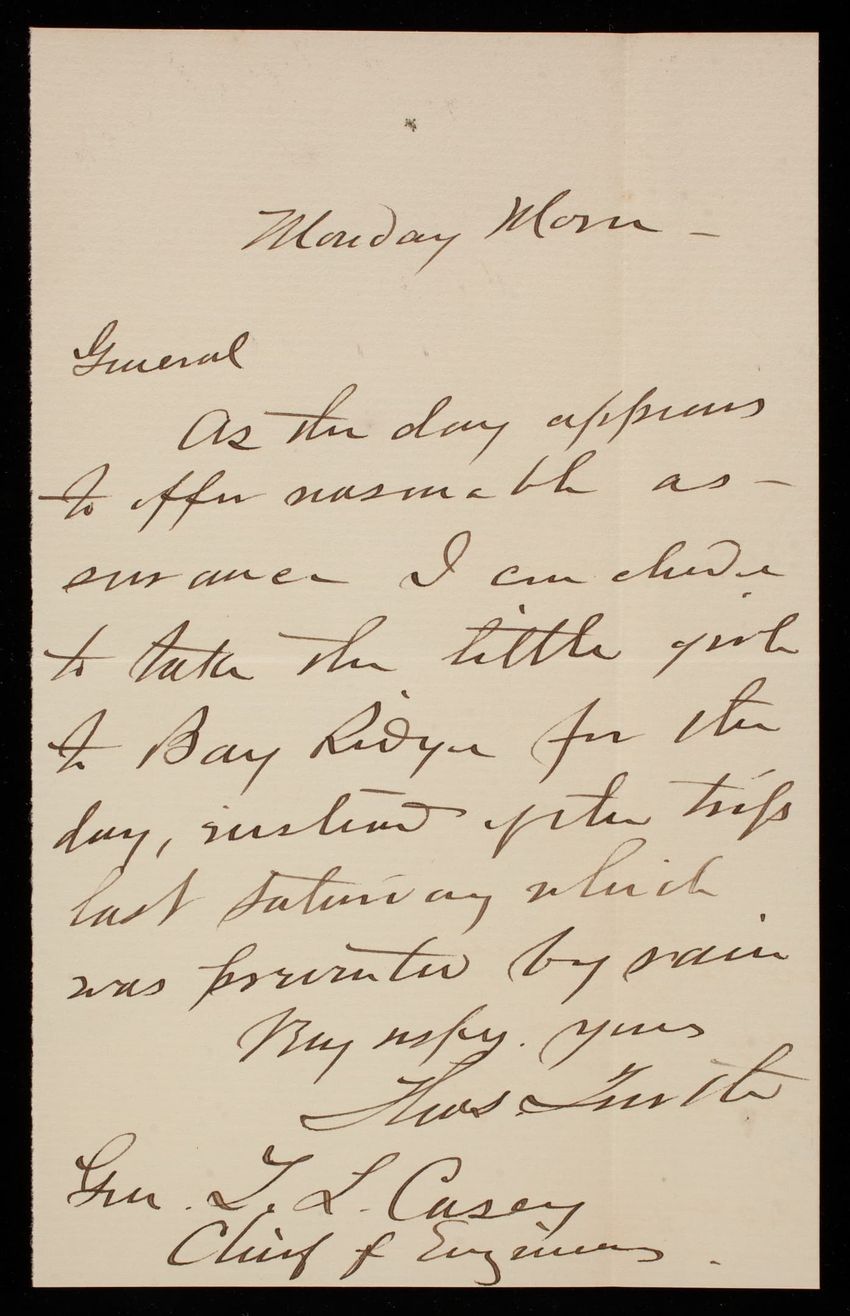 Monday Morn -
General
As the day appears
to offer reasonable as-
surance I conclude
to take the little girls
to Bay Ridge for the
day, instead of the trip
last Saturday which
was prevented by rain
Very respy. yours
Thos. Turtle
Gen. T. L. Casey
Chief of Engineers.